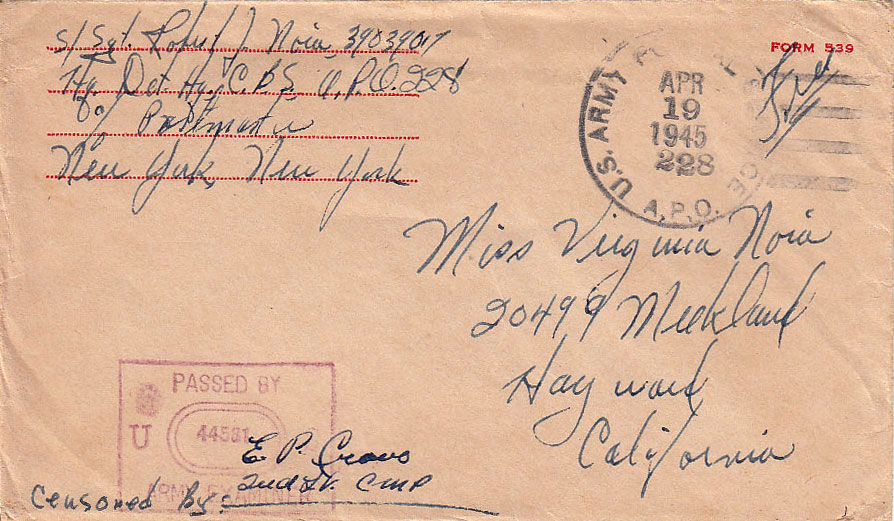 S/Sgt. Robert J. Noia, 39039017
Hq. Det. Hq. C.B.S. A.P.O. 228
c/o Postmaster
New York, New York
FORM 539
Free
U.S. ARMY POSTAL SERVICE
APR
19
1945
228
A.P.O.
Miss Virginia Noia
20499 Meekland
Hayward
California
PASSED BY
U
44581
ARMY EXAMINER
E. P. 
2nd Lt. CMP
Censored By: